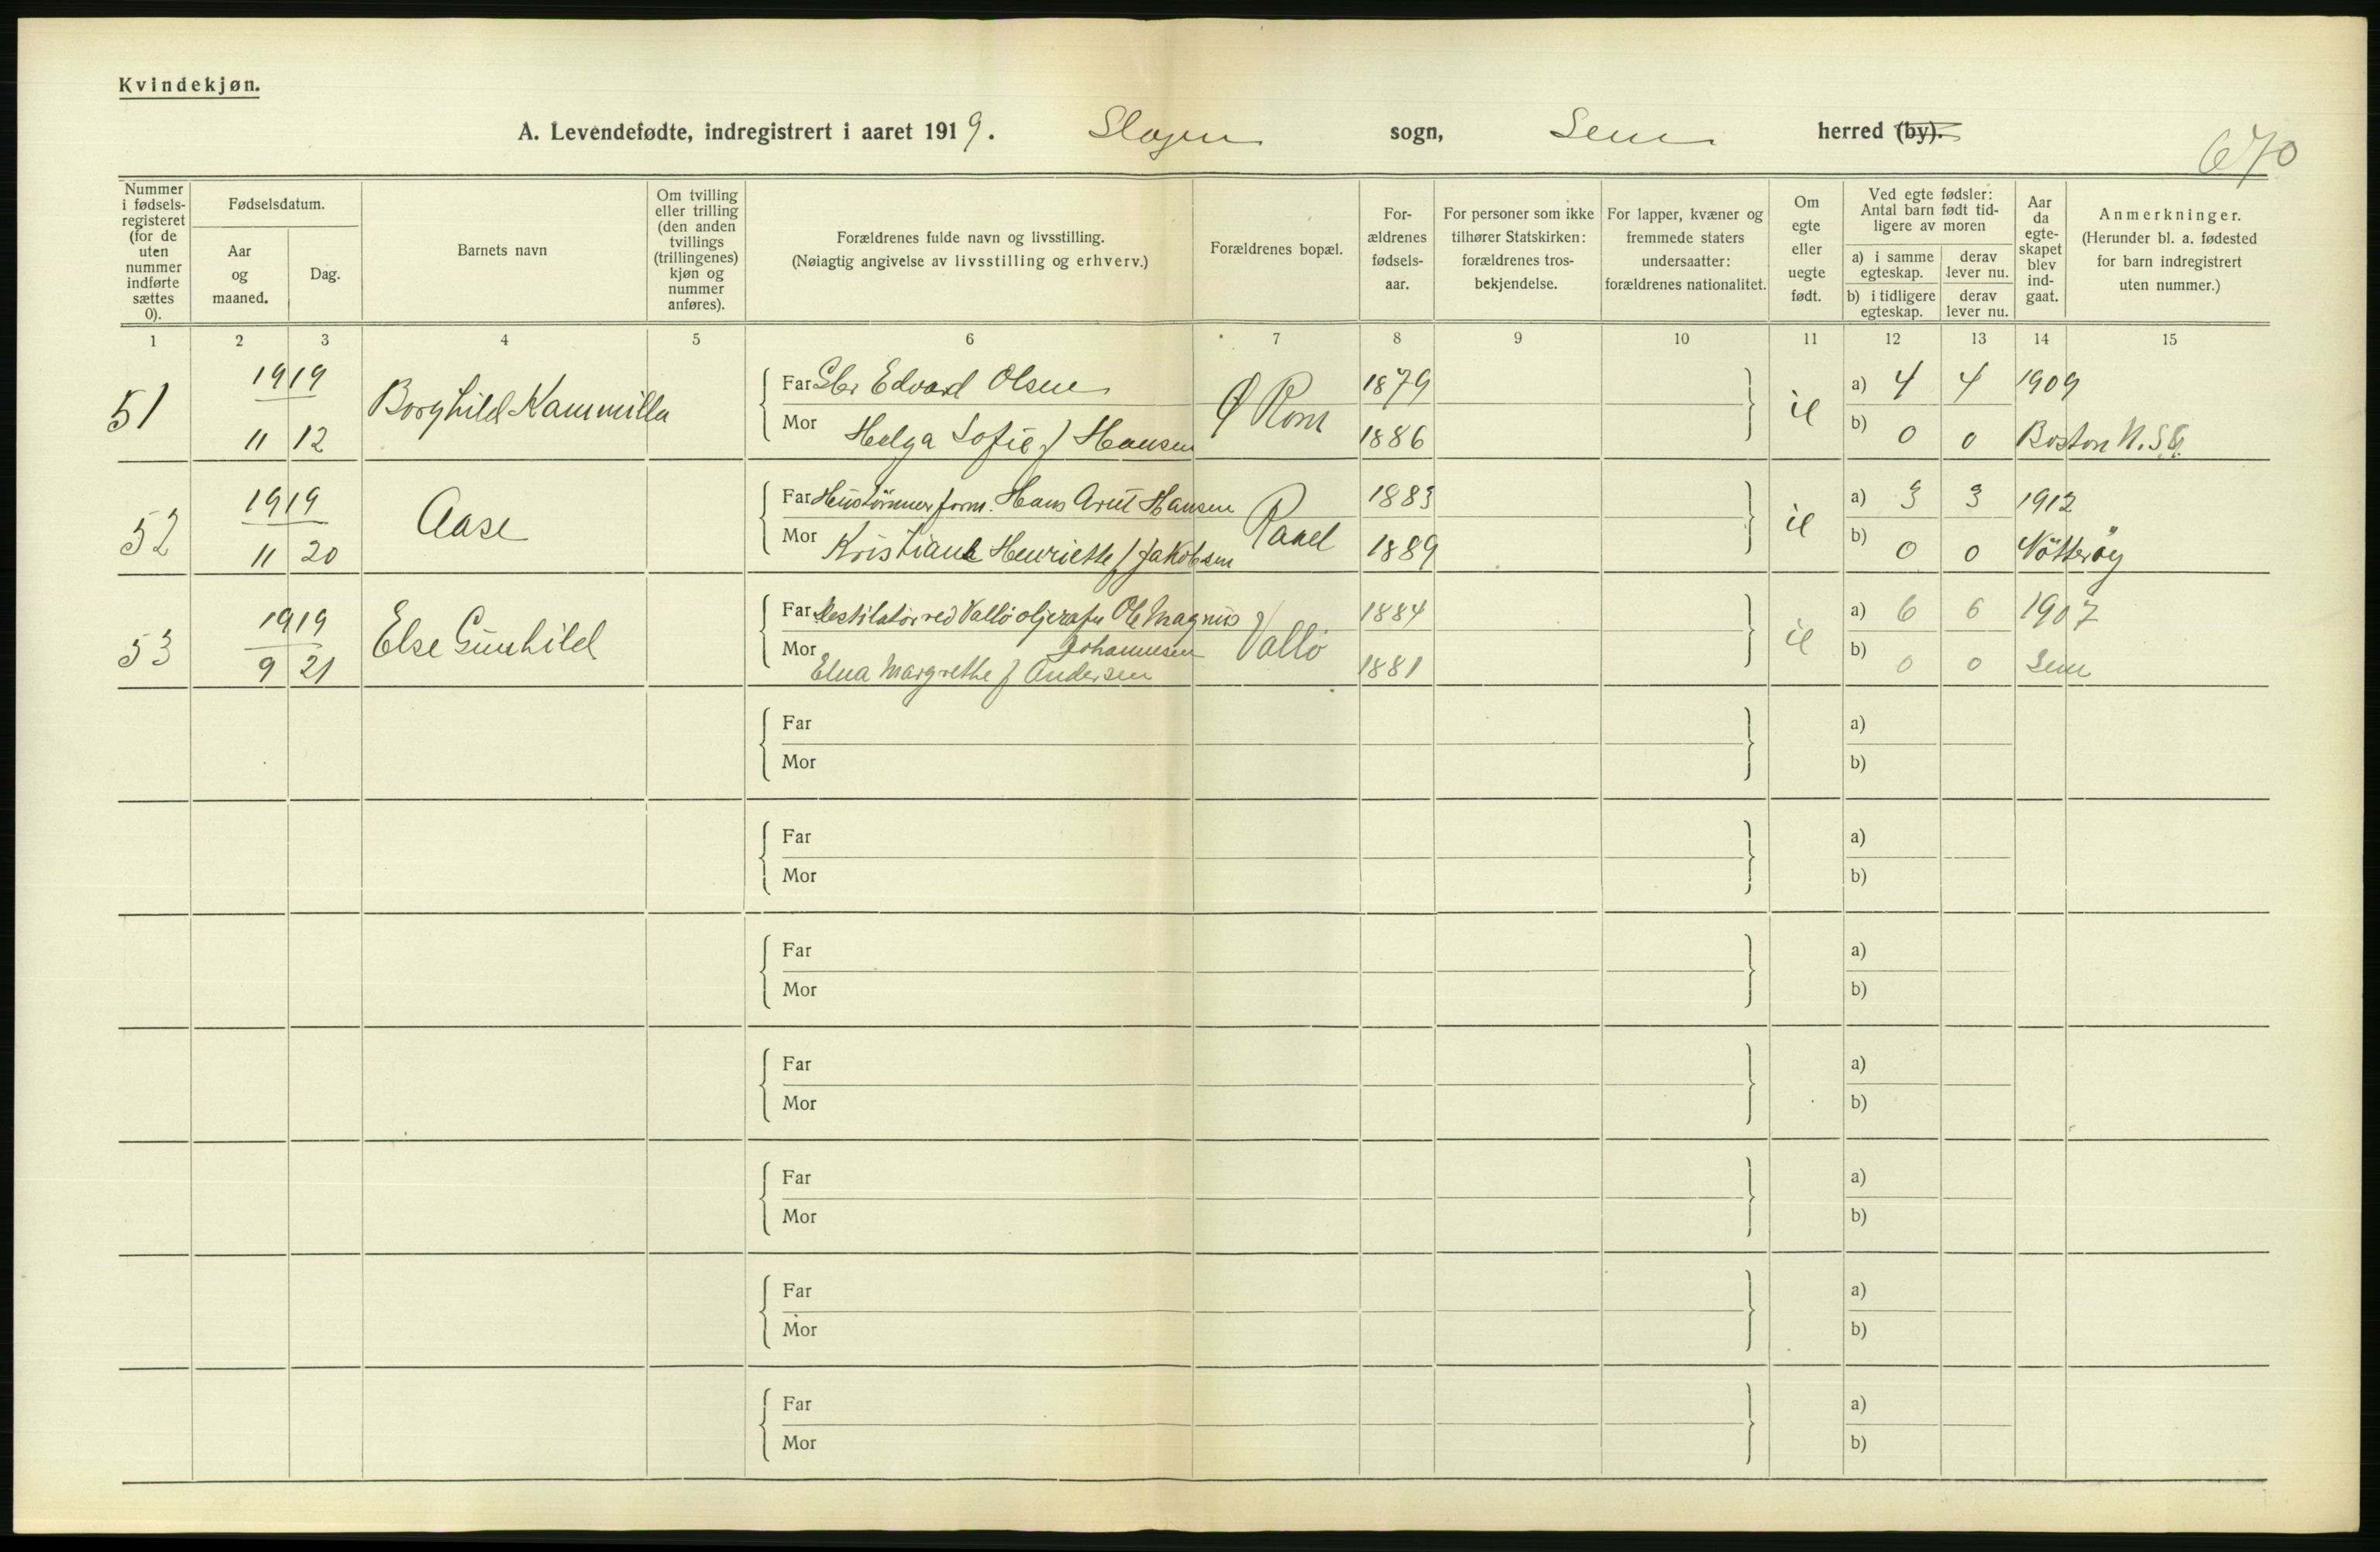 Kvindekjøn.
A. Levendefødte, indregistrert i aaret 1919. Slagen sogn, Sem herred (by).
670
Nummer i fødsels-registeret (for de uten nummer indførte sættes 0).
Fødselsdatum.
Aar og maaned.
Dag.
Barnets navn
Om tvilling eller trilling (den anden tvillings (trillingenes) kjøn og nummer anføres).
Forældrenes fulde navn og livsstilling.
(Nøiagtig angivelse av livsstilling og erhverv.)
Forældrenes bopæl.
For-ældrenes fødsels-aar.
For personer som ikke tilhører Statskirken: forældrenes tros-bekjendelse.
For lapper, kvæner og fremmede staters undersaatter: forældrenes nationalitet.
Om egte eller uegte født.
Ved egte fødsler: Antal barn født tid-ligere av moren
a) i samme egteskap.
derav lever nu.
b) i tidligere egteskap.
derav lever nu.
Aar da egte-skapet blev ind-gaat.
Anmerkninger.
(Herunder bl. a. fødested for barn indregistrert uten nummer.)
1 2 3 4 5 6 7 8 9 10 11 12 13 14 15
51 1919 11 12 Borghild Kammilla
Far Edvard Olsen
Mor Helga Sofie f Hansen
Ø Rom 1879 1886
a) 4 4 1909
b) 0 0 Boston
52 1919 11 20 Aase
Far Hustømmer form. Hans Arnt Hansen
Mor Kristiane Henriette f Jakobsen
Raael 1883 1889
a) 3 3 1912
b) 0 0 Nötteröy
53 1919 9 21 Else Gunhild
Far Destilatör ved Vallö oljeraf Ole Magnus Johannesen
Mor Elna Margrethe f Andersen
Vallö 1884 1881
a) 6 6 1907
b) 0 0 Sem
Far a)
Mor b)
Far a)
Mor b)
Far a)
Mor b)
Far a)
Mor b)
Far a)
Mor b)
Far a)
Mor b)
Far a)
Mor b)